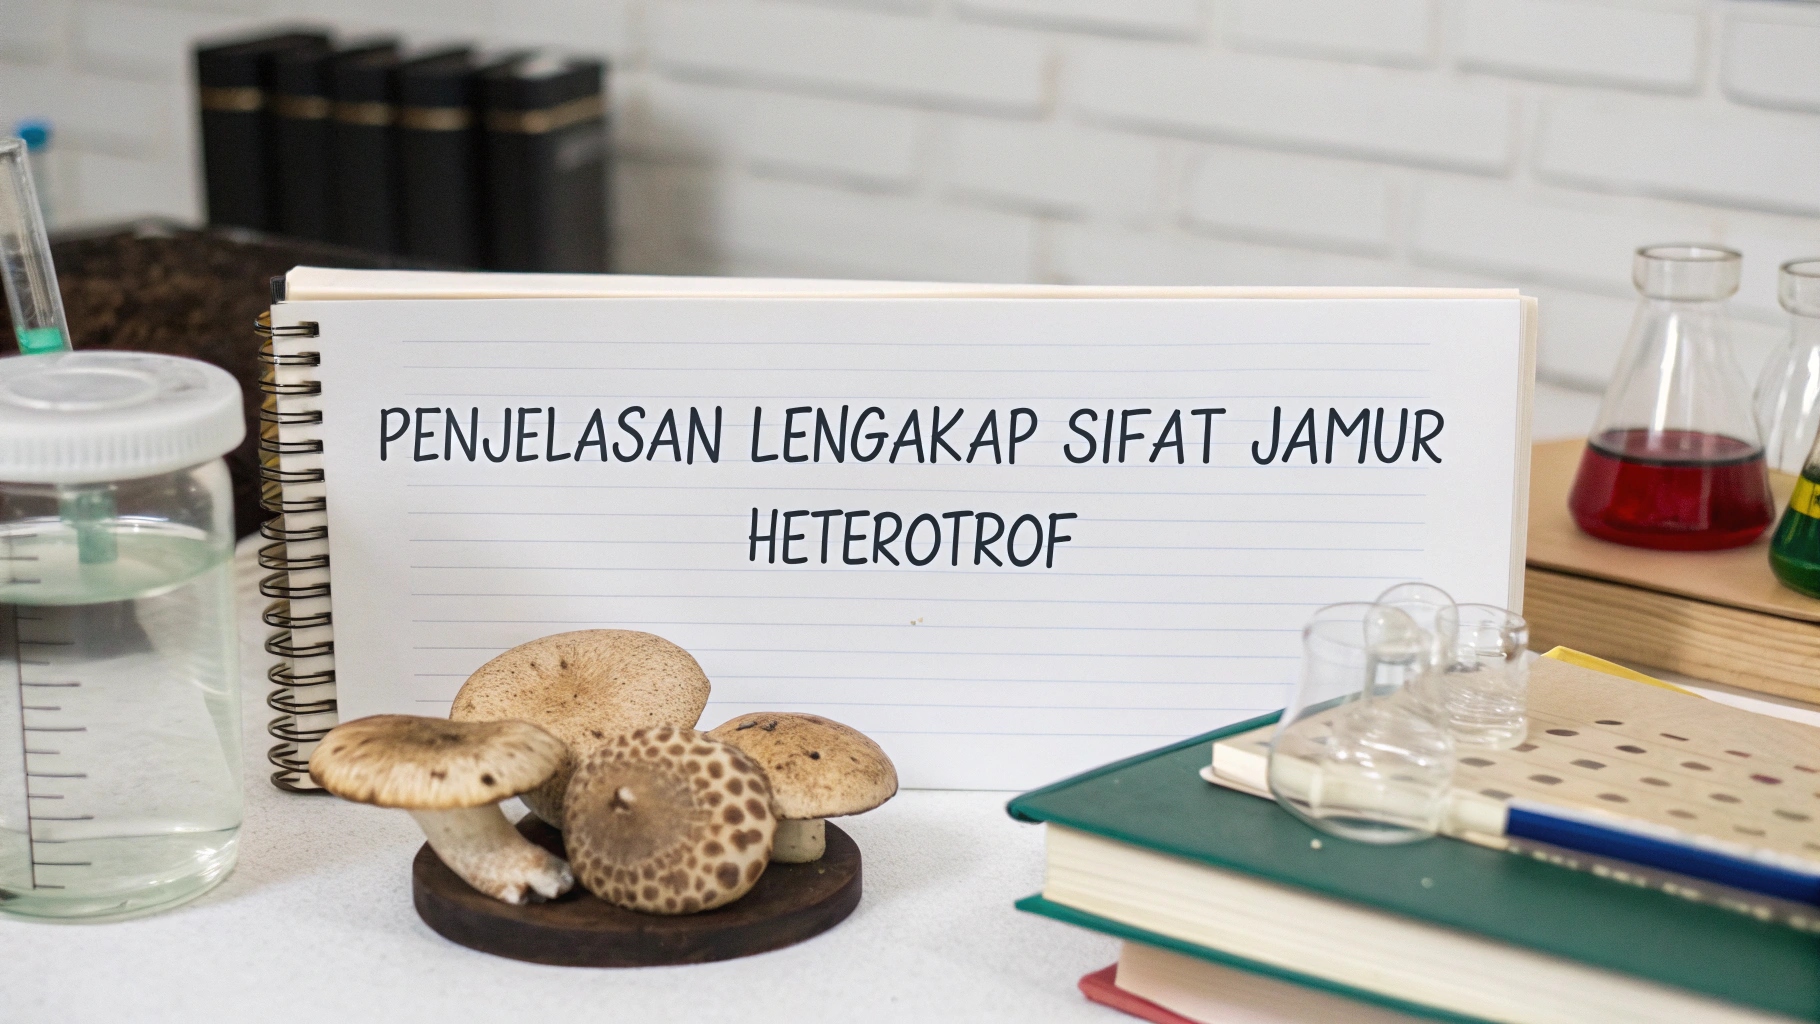 PENJELASAN LENGAKAP SIFAT JAMUR
HETEROTROF